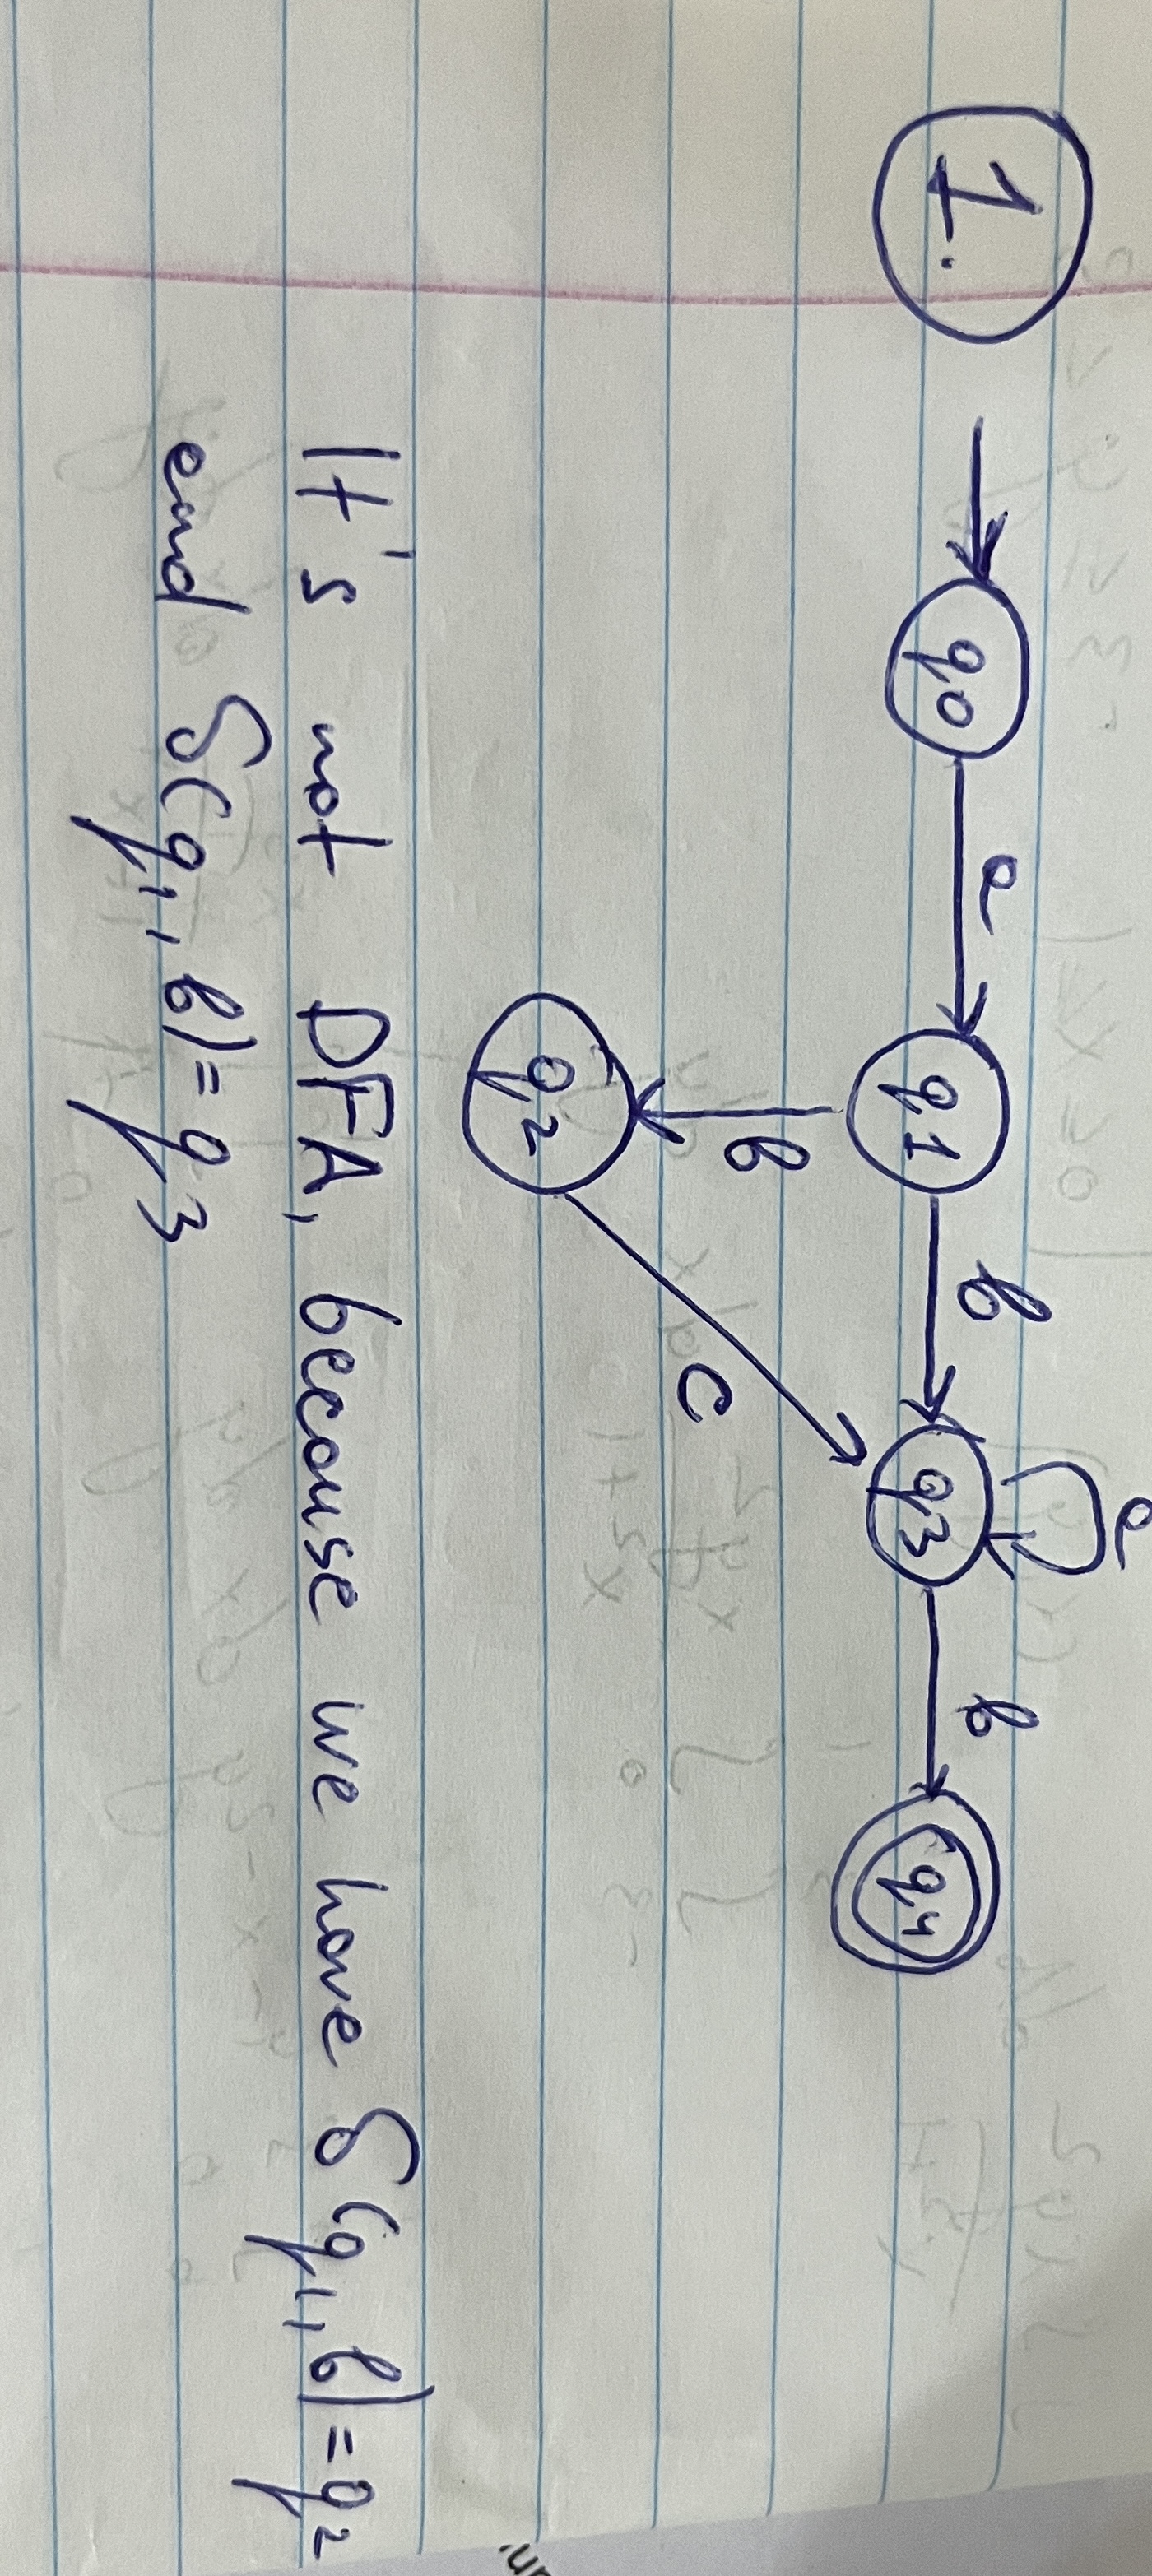 1.
a
q0 a q1 b q3 b q4
b
c
q2
It's not DFA, because we have δ(q1, b) = q2
and δ(q1, b) = q3